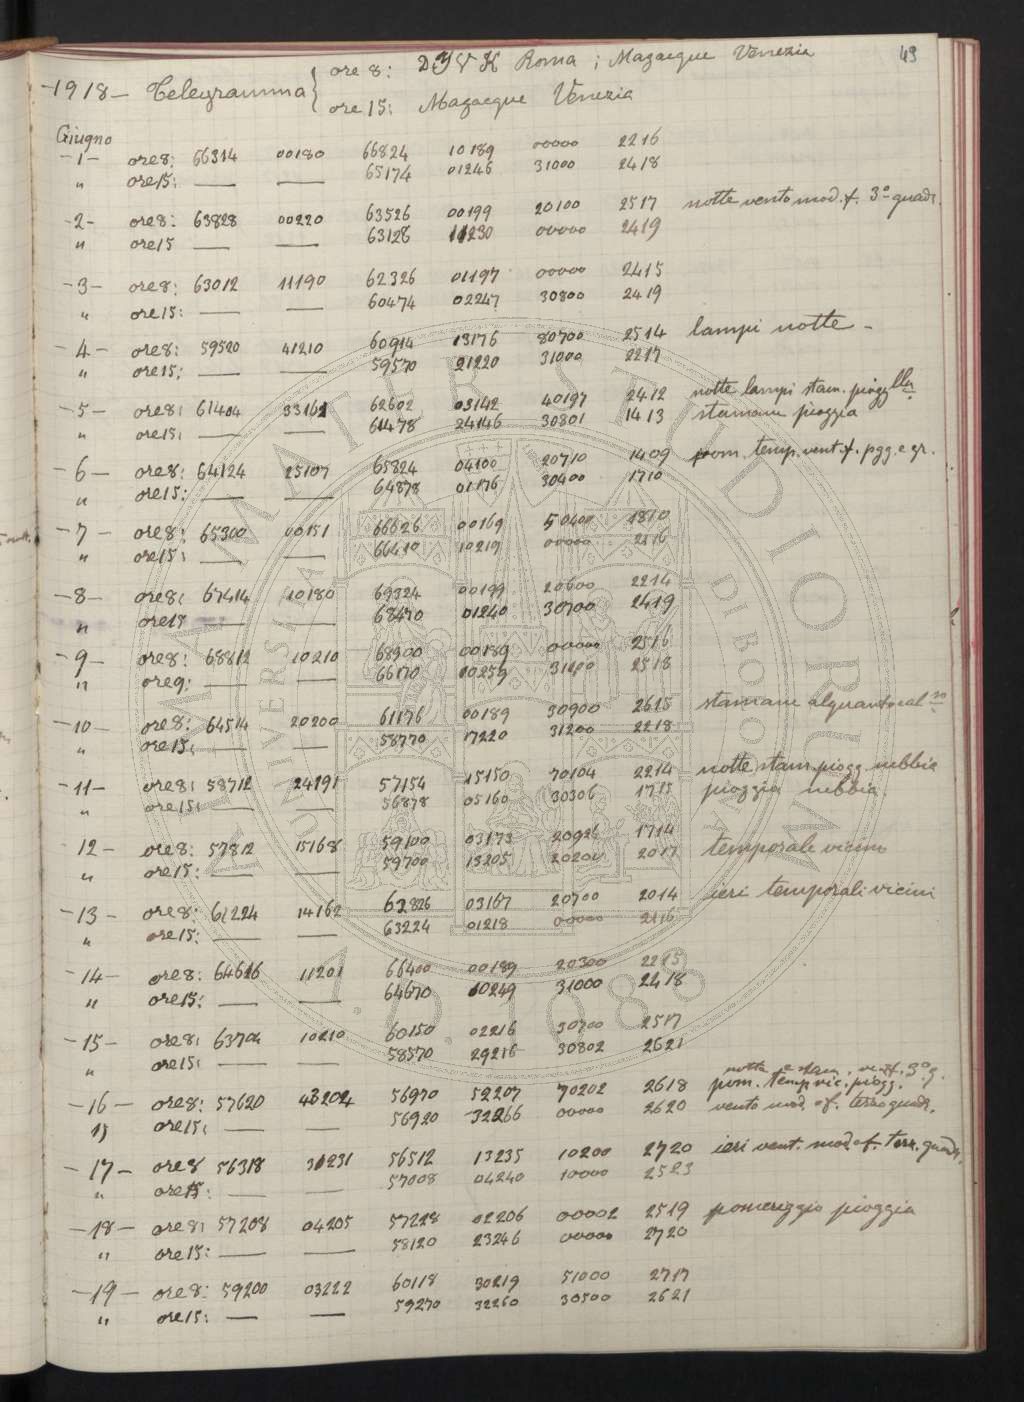 49
ore 8: D Y V K Roma ; Magacque Venezia
-1918- Telegramma
ore 15: Magacque Venezia
Giugno
-1- ore 8: 66314 00180 66824 10189 00000 2216
" ore 15: — — 65174 01246 31000 2418
-2- ore 8: 63828 00220 63526 00199 20100 2517 notte vento mod. f. 3º quadr.
" ore 15 — — 63128 11230 00000 2419
-3- ore 8: 63012 11190 62326 01197 00000 2415
" ore 15: — — 60474 02247 30800 2419
-4- ore 8: 59520 41210 60914 13176 80700 2514 lampi notte -
" ore 15: — — 59570 21220 31000 2217
-5- ore 8: 61404 33162 62602 03142 40197 2412 notte lampi stam.
" ore 15: — — 61478 24146 30801 1413 stamane pioggia
-6- ore 8: 64124 25107 65824 04100 20710 1409 pom. temp. vent. f. pgg. e gr.
" ore 15: — — 64878 01176 30400 1710
-7- ore 8: 65300 00151 66626 00169 50400 1810
" ore 15: — — 66410 10219 00000 2116
-8- ore 8: 67414 10180 69324 00199 20600 2214
" ore 15 — — 68470 01240 30700 2419
-9- ore 8: 68812 10210 68900 00189 00000 2516
" ore 9: — — 66170 00259 31200 2518
-10- ore 8: 64514 20200 61176 00189 30900 2615 stamane alquanto
" ore 15: — — 58770 17220 31200 2218
-11- ore 8: 58712 24191 57154 15150 70104 2214 notte stam. piogg. nebbia
" ore 15: — — 56878 05160 30306 1715 pioggia nebbia.
-12- ore 8: 57812 15168 59100 03173 20926 1714 temporale vicino
" ore 15: — — 59700 13205 20200 2017
-13- ore 8: 61224 14162 63826 03167 20700 2014 ieri temporali vicini
" ore 15: — — 63224 01218 00000 2116
-14- ore 8: 64626 11201 66400 00189 20300 2215
" ore 15: — — 64670 10249 31000 2418
-15- ore 8: 63704 10210 60150 02216 30700 2517
" ore 15: — — 58570 29216 30802 2621
notte e stam. vent. f. 3º q.
-16- ore 8: 57620 43204 56970 59207 70202 2618 pom. temp. vic. piogg.
" ore 15: — — 56920 32266 00000 2620 vento mod. of. terzo quadr.
-17- ore 8 56318 31231 56512 13235 10200 2720 ieri vent. mod. of. terz. quadr.
" ore 15: — — 57008 04240 10000 2523
-18- ore 8: 57208 04205 57228 02206 00002 2519 pomeriggio pioggia
" ore 15: — — 58120 23246 00000 2720
-19- ore 8: 59200 03222 60118 30219 51000 2717
" ore 15: — — 59270 32260 30500 2621
ALMA MATER STUDIORUM
UNIVERSITÀ DI BOLOGNA
A.D. 1088